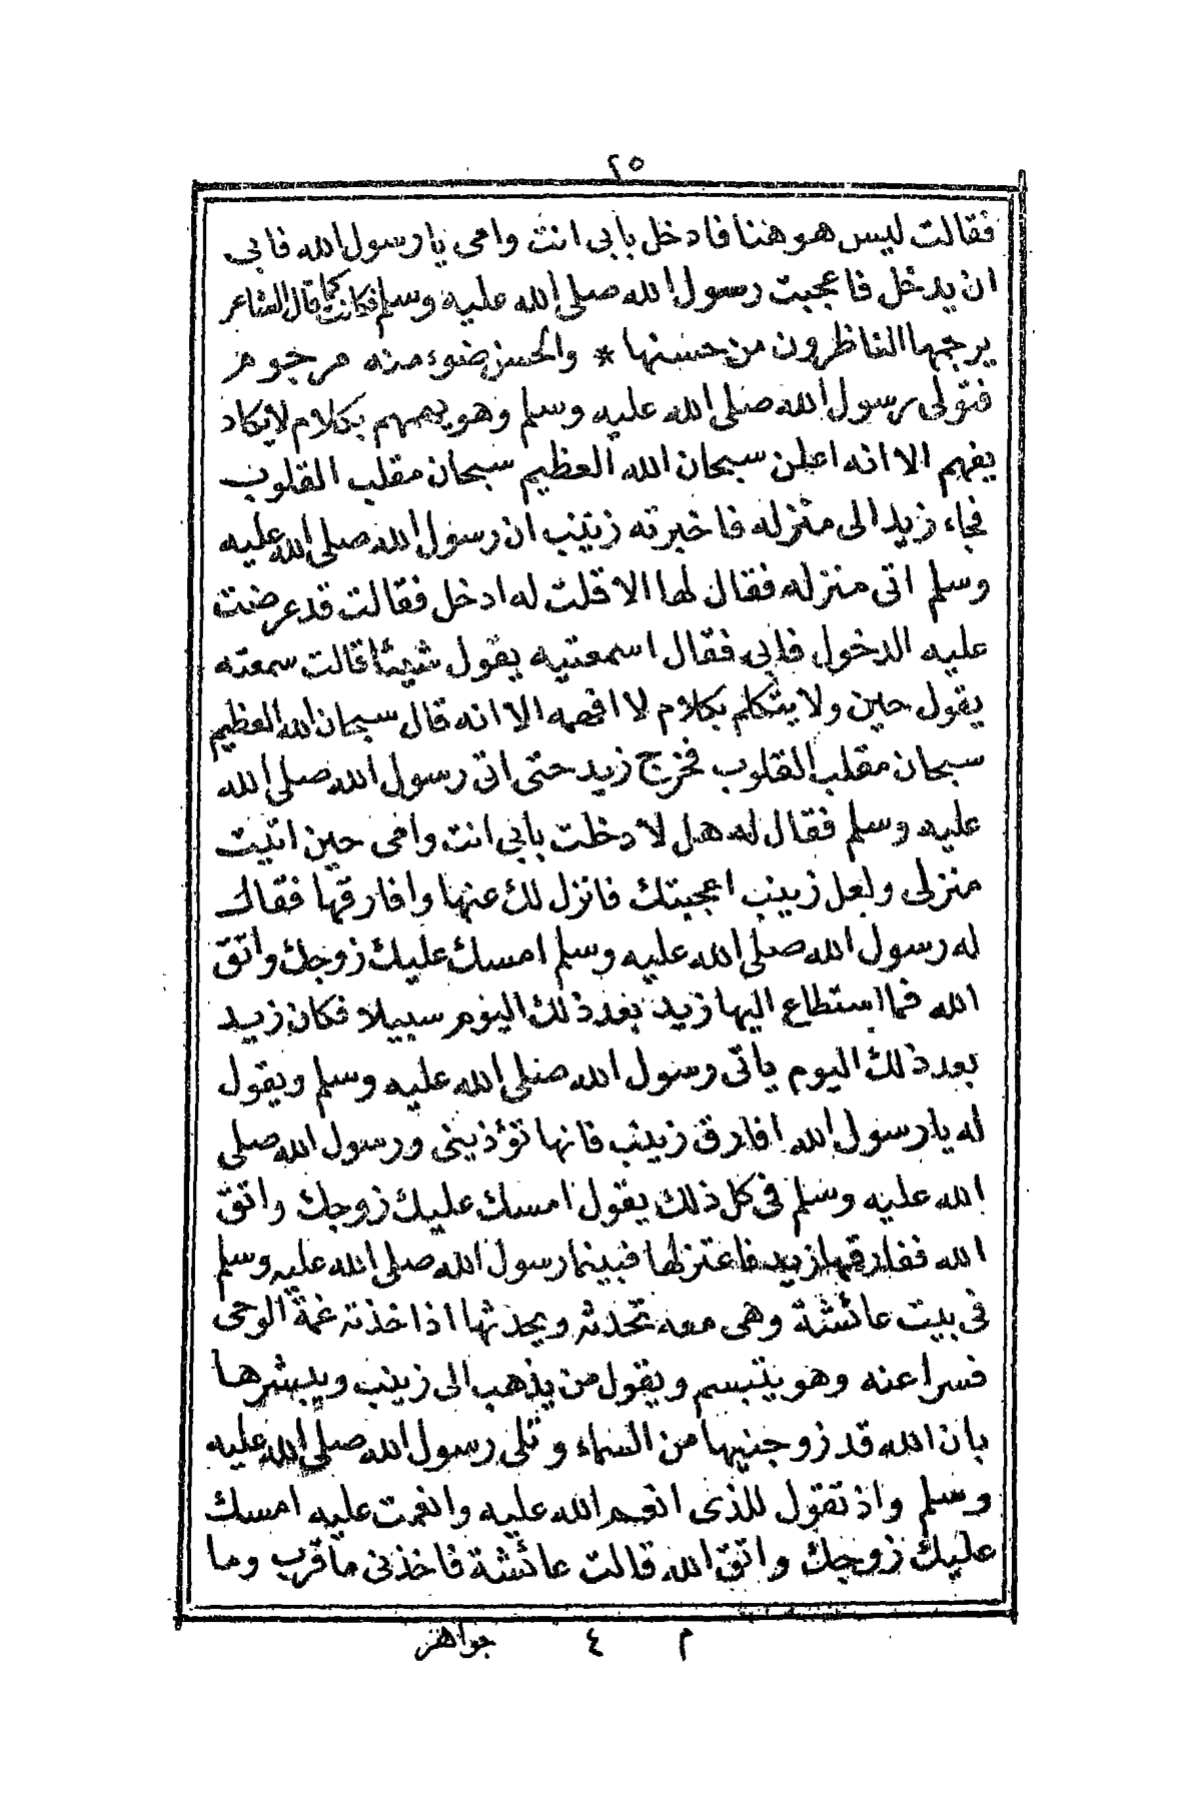 ٢٥
فقالت ليس هو هنا فادخل بابى انت وامى يا رسول الله فابى
ان يدخل فاعجبت رسول الله صلى الله عليه وسلم فكانت كما قال الشاعر
يرجمها الناظرون من حسنها * والحسن ضوء منه مرجوم
فتولى رسول الله صلى الله عليه وسلم وهو يهمهم بكلام لا يكاد
يفهم الا انه اعلن سبحان الله العظيم سبحان مقلب القلوب
فجاء زيد الى منزله فاخبرته زينب ان رسول الله صلى الله عليه
وسلم اتى منزله فقال لها الا قلت له ادخل فقالت قد عرضت
عليه الدخول فابى فقال اسمعتيه يقول شيئا قالت سمعته
يقول حين ولا يتكلم بكلام لا افهمه الا انه قال سبحان الله العظيم
سبحان مقلب القلوب فخرج زيد حتى اتى رسول الله صلى الله
عليه وسلم فقال له هل لا دخلت بابى انت وامى حين اتيت
منزلى ولعل زينب اعجبتك فانزل لك عنها وافارقها فقال
له رسول الله صلى الله عليه وسلم امسك عليك زوجك واتق
الله فما استطاع اليها زيد بعد ذلك اليوم سبيلا فكان زيد
بعد ذلك اليوم ياتى رسول الله صلى الله عليه وسلم ويقول
له يا رسول الله افارق زينب فانها تؤذينى ورسول الله صلى
الله عليه وسلم فى كل ذلك يقول امسك عليك زوجك واتق
الله ففارقها زيد فاعتزلها فبينما رسول الله صلى الله عليه وسلم
فى بيت عائشة وهى معه تحدثه ويحدثها اذ اخذته غمة الوحى
فسرا عنه وهو يتبسم ويقول من يذهب الى زينب ويبشرها
بان الله قد زوجنيها من السماء وتلى رسول الله صلى الله عليه
وسلم واذ تقول للذى انعم الله عليه وانعمت عليه امسك
عليك زوجك واتق الله قالت عائشة فاخذنى ما قرب وما
م ٤ جواهر